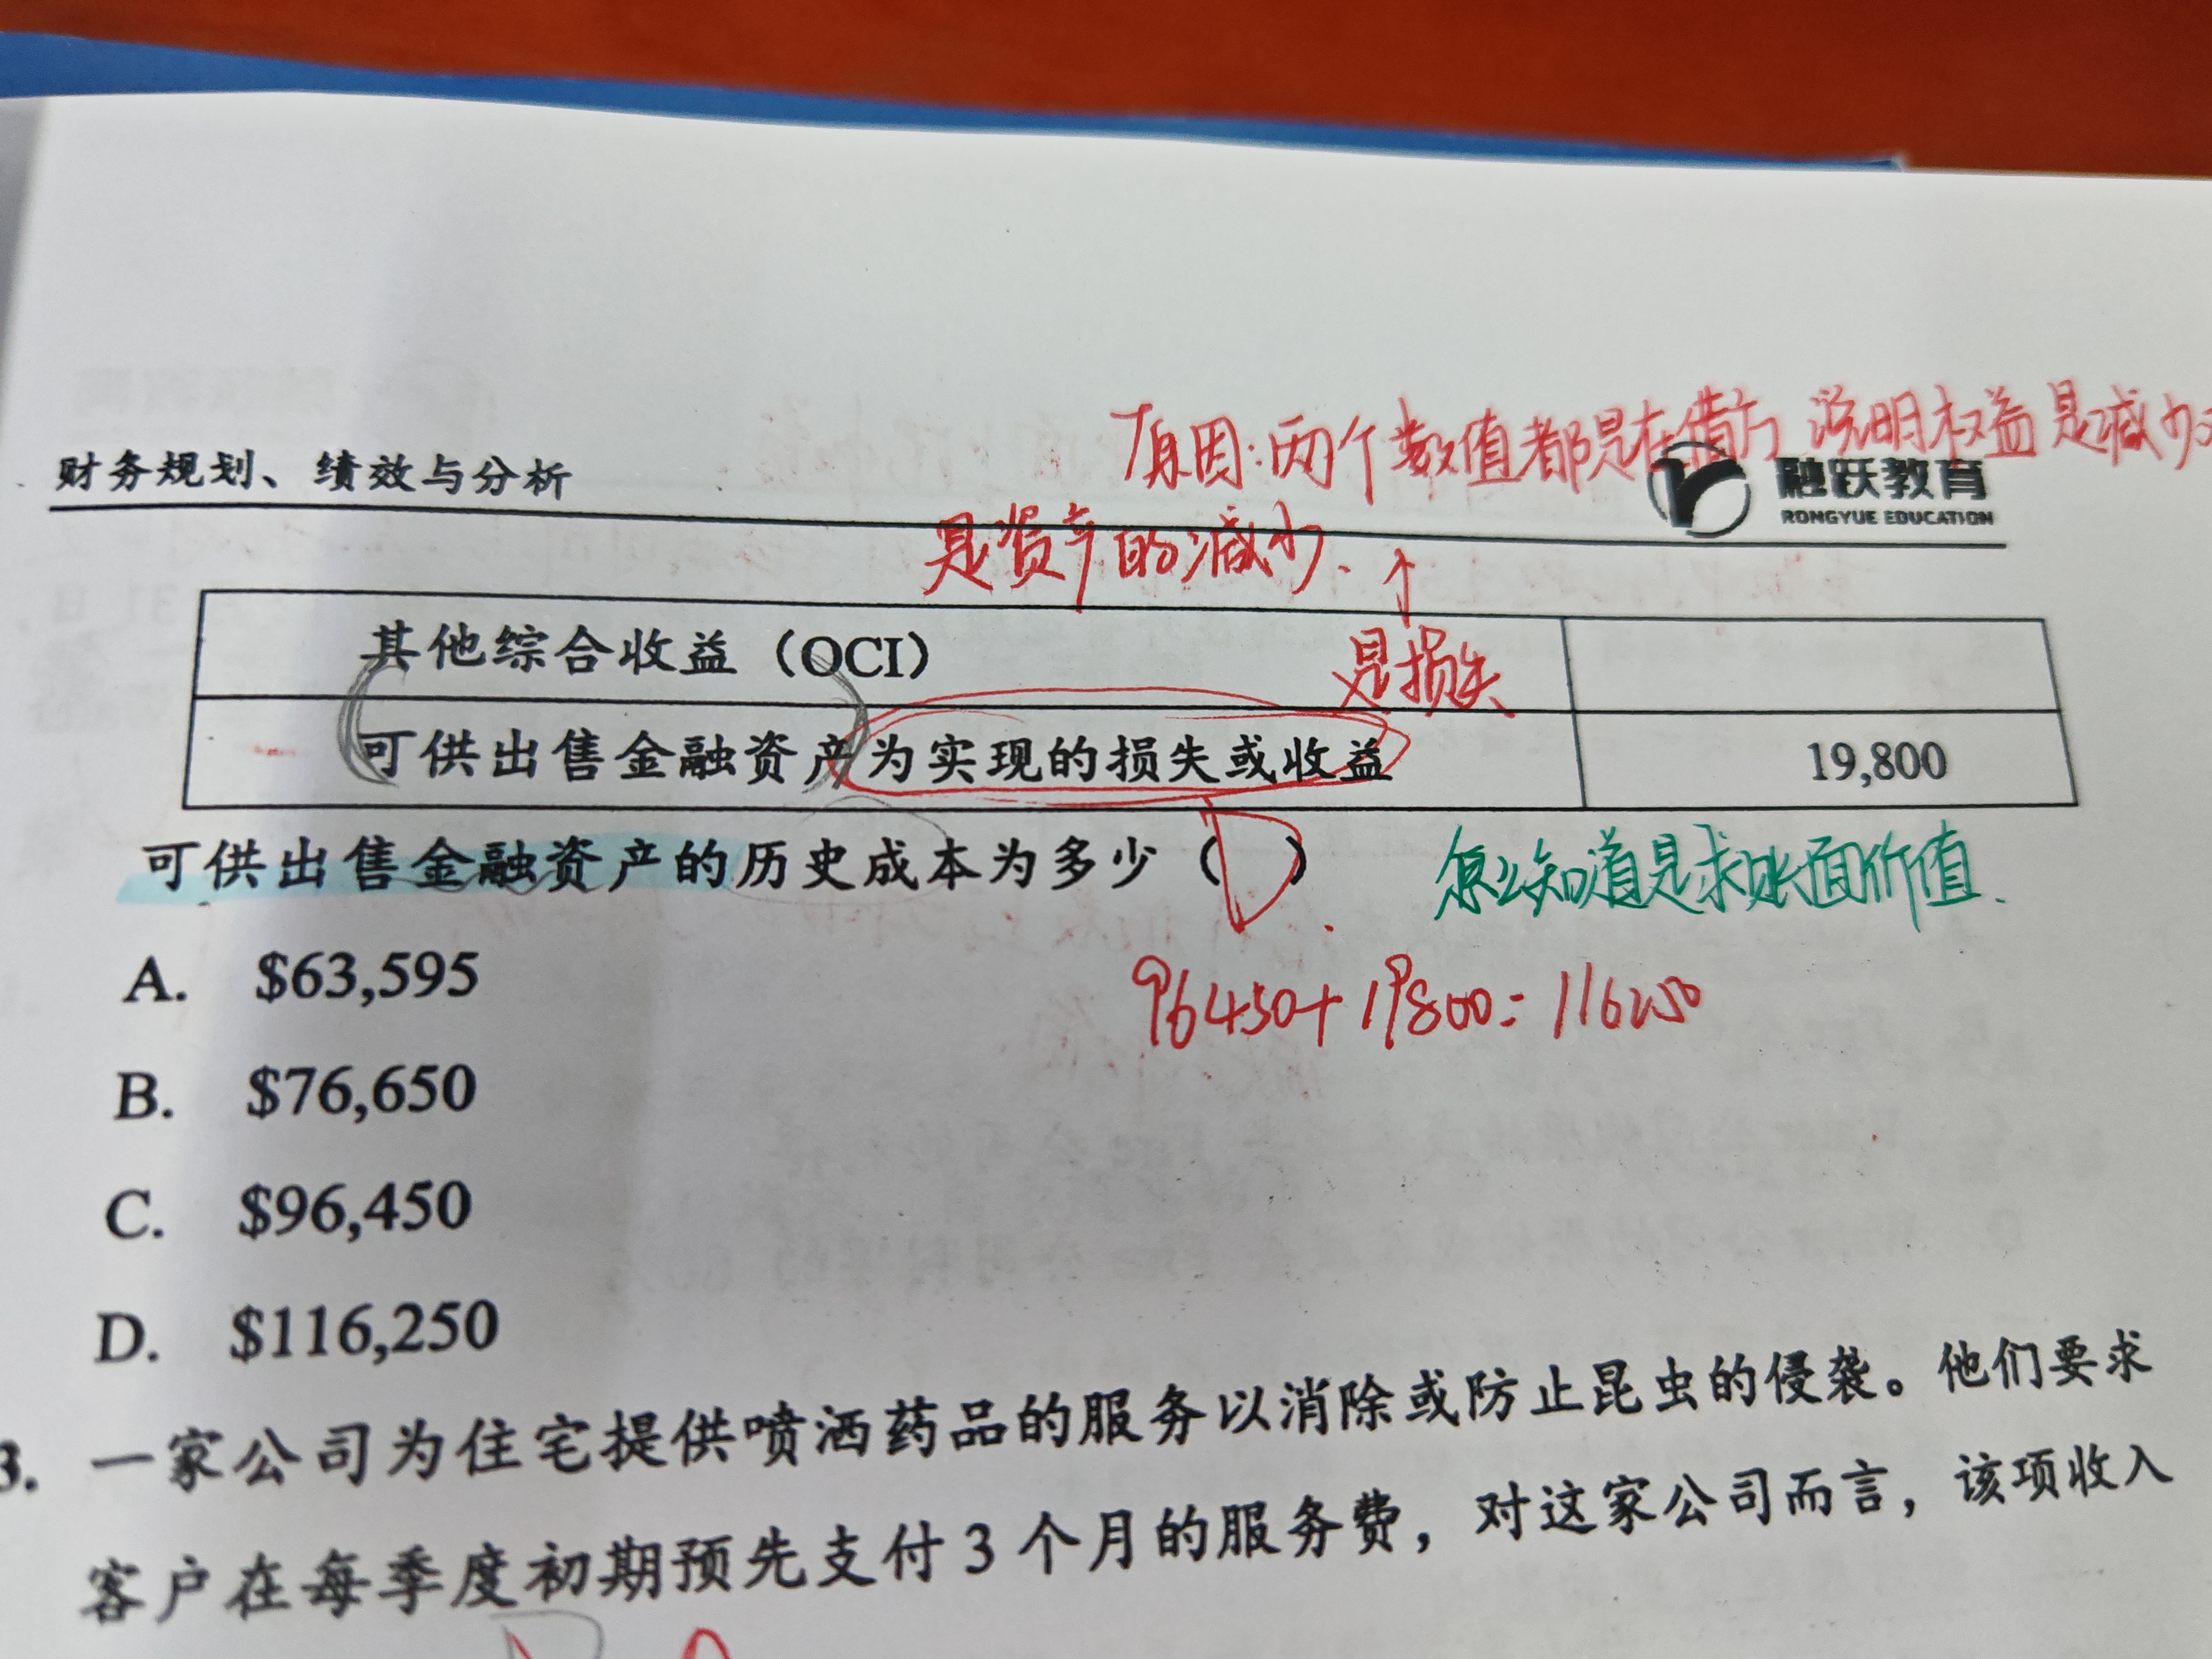 原因:两个数值都是在借方 说明权益是减少
财务规划、绩效与分析
融跃教育
RONGYUE EDUCATION
是资产的减少.
↑
其他综合收益（OCI）
是损失
可供出售金融资产为实现的损失或收益 19,800
可供出售金融资产的历史成本为多少（D）.
怎么知道是求账面价值.
A. $63,595
96450+19800=116250
B. $76,650
C. $96,450
D. $116,250
3. 一家公司为住宅提供喷洒药品的服务以消除或防止昆虫的侵袭。他们要求
客户在每季度初期预先支付3个月的服务费，对这家公司而言，该项收入